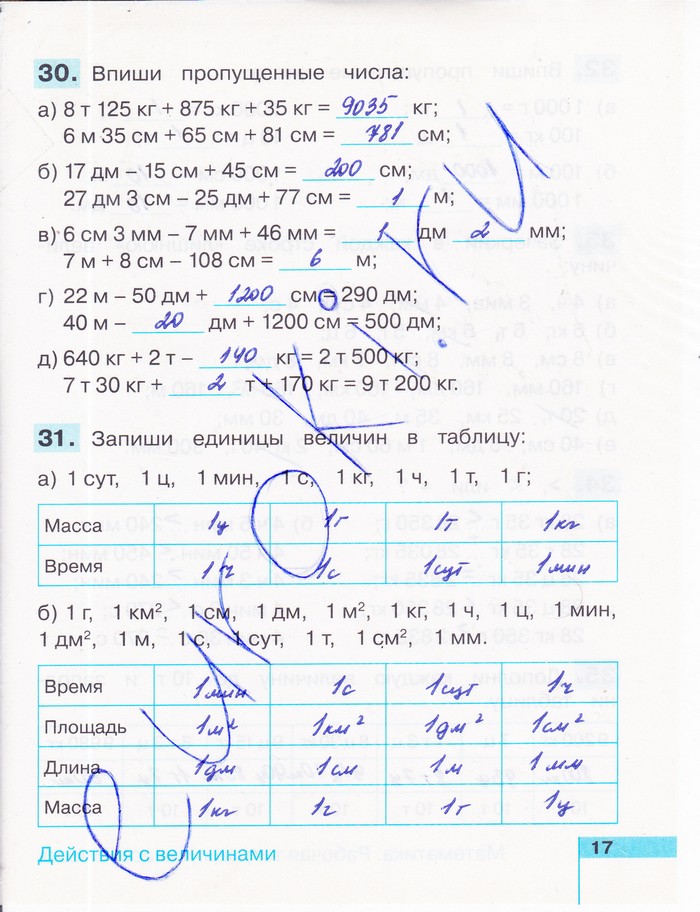 30. Впиши пропущенные числа:
а) 8 т 125 кг + 875 кг + 35 кг = 9035 кг;
6 м 35 см + 65 см + 81 см = 781 см;
б) 17 дм – 15 см + 45 см = 200 см;
27 дм 3 см – 25 дм + 77 см = 1 м;
в) 6 см 3 мм – 7 мм + 46 мм = 1 дм 2 мм;
7 м + 8 см – 108 см = 6 м;
г) 22 м – 50 дм + 1200 см = 290 дм;
40 м – 20 дм + 1200 см = 500 дм;
д) 640 кг + 2 т – 140 кг = 2 т 500 кг;
7 т 30 кг + 2 т + 170 кг = 9 т 200 кг.
31. Запиши единицы величин в таблицу:
а) 1 сут, 1 ц, 1 мин, 1 с, 1 кг, 1 ч, 1 т, 1 г;
Масса 1ц 1г 1т 1кг
Время 1ч 1с 1сут 1мин
б) 1 г, 1 км², 1 см, 1 дм, 1 м², 1 кг, 1 ч, 1 ц, 1 мин,
1 дм², 1 м, 1 с, 1 сут, 1 т, 1 см², 1 мм.
Время 1мин 1с 1сут 1ч
Площадь 1м² 1км² 1дм² 1см²
Длина 1дм 1см 1м 1мм
Масса 1кг 1г 1т 1ц
Действия с величинами 17